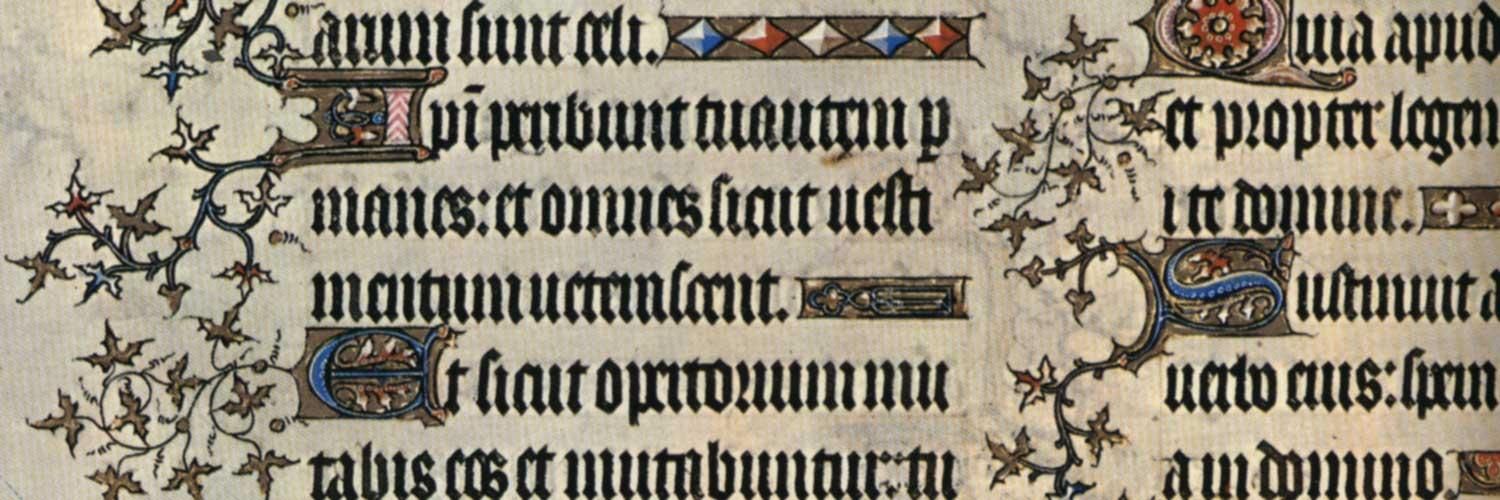 arum sunt celi.
Ipī peribunt tu autem p
manes: et omnes sicut uesti
mentum ueterascent.
Et sicut opertorium mu
tabis eos et mutabuntur: tu
Quia apud
et propter legem
i te domine.
Sustinuit a
uerbo eius: spera
a in domino